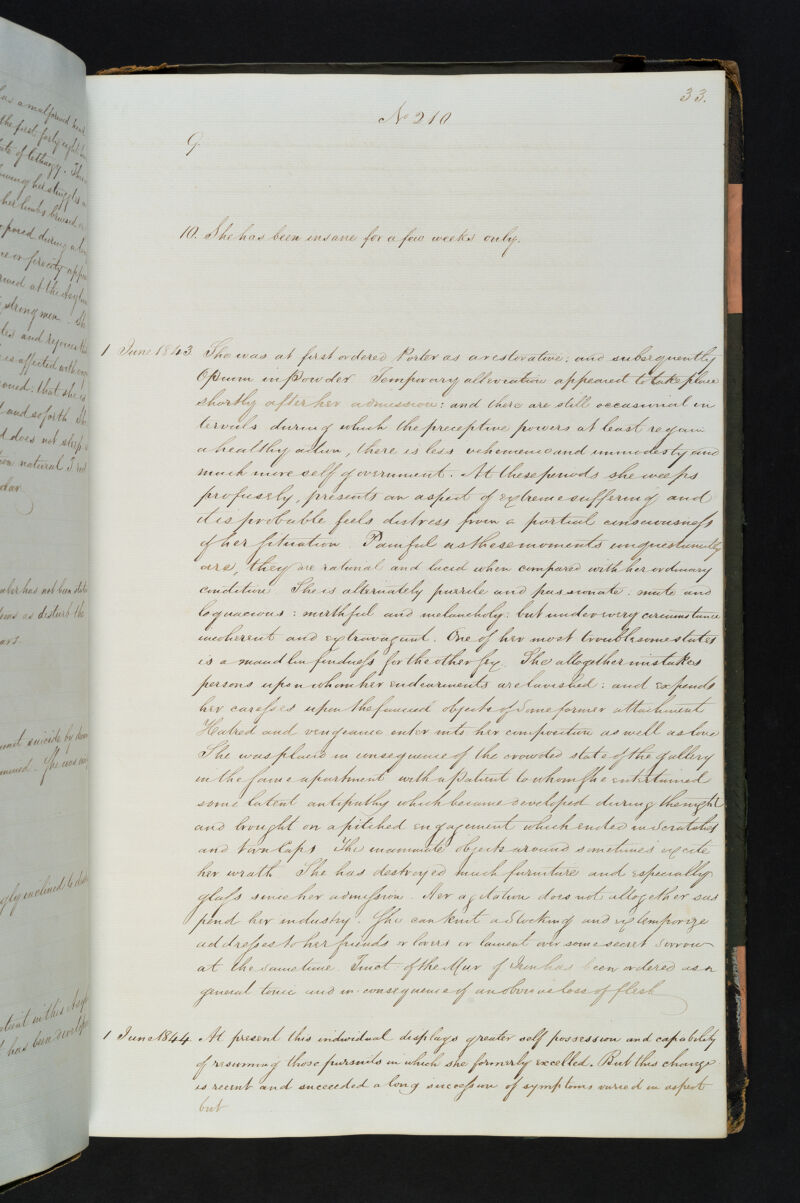 33.
No 210
9
10. She has been insane for a few weeks only.
1 June 1843 She was at first ordered Porter as a restorative; and subsequently
Opium in Powder Temporary alleviation appeared to take place
shortly after her admission: and there are still occasional in
tervals during which the preceptive powers at least regain
a healthy action, there is less vehemence and immodesty and
much more self government. At these periods she weeps
profusely, presents an aspect of extreme suffering and
it is probable feels distress from a partial consciousness
of her situation. Painful as these moments unquestionably
are, they are rational and lucid when compared with her ordinary
condition She is alternately puerile and passionate: mute and
loquacious: mirthful and melancholy: but under every circumstance
incoherent and extravagant. One of her most troublesome states
is a maudlin fondness for the other sex. She altogether mistakes
persons upon whom her endearments are lavished: and expends
her caresses upon the fancied objects of some former attachment
Hatred and vengeance enter into her composition as well as love
She was placed in consequence of the crowded state of the gallery
in the same apartment with a Patient to whom she entertained
some latent antipathy which became developed during the night
and brought on a pitched engagement which ended in Scratches
and torn Caps The inanimate objects around sometimes excite
her wrath She has destroyed much furniture and especially
glass since her admission. Her agitation does not altogether sus
pend her industry. She can knit a Stocking and extemporize
addresses to her friends or lovers or lament over some secret sorrow
at the same time. Tinct. of the Mur of Iron has been ordered as a
general tonic and in consequence of an obvious loss of flesh
1 June 1844. At present this individual displays greater self possession and capability
of resuming those pursuits in which she formerly excelled. But this change
is recent and succeeded a long succession of symptoms varied in aspect
but
has a malformed
the first forty eight
state of lethargy.
her struggles
her limbs bruised
during a
or ferocity
at the Asylum
strong men. She
and rejoices
is affected with
that she is
and so forth She
does not sleep
natural I
has not been
as disturb the
suicide by
She was
inclined to
in this
has been